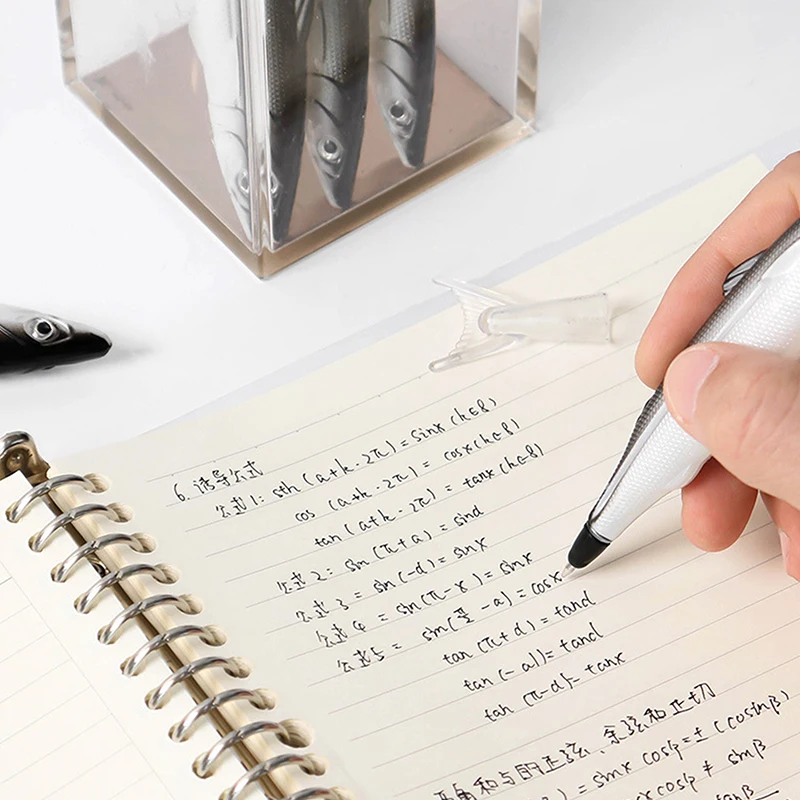 6. 诱导公式
公式1: sin (a+k·2π) = sinx (k∈8)
cos (a+k·2π) = cosx (k∈8)
tan (a+k·2π) = tanx (k∈8)
公式2: sin (π+a) = sind
公式3 = sin(-d) = sinx
公式4 = sin(π-x) = sinx
公式5 = sin(π/2 -a) = cosx
tan (π+d) = tand
tan (-a)) = tand
tan (π-d)= tanx
角和与的正弦、余弦和正切
) = sinx cosβ = ± (cosinβ)
xcosβ ≠ sinβ
anβ